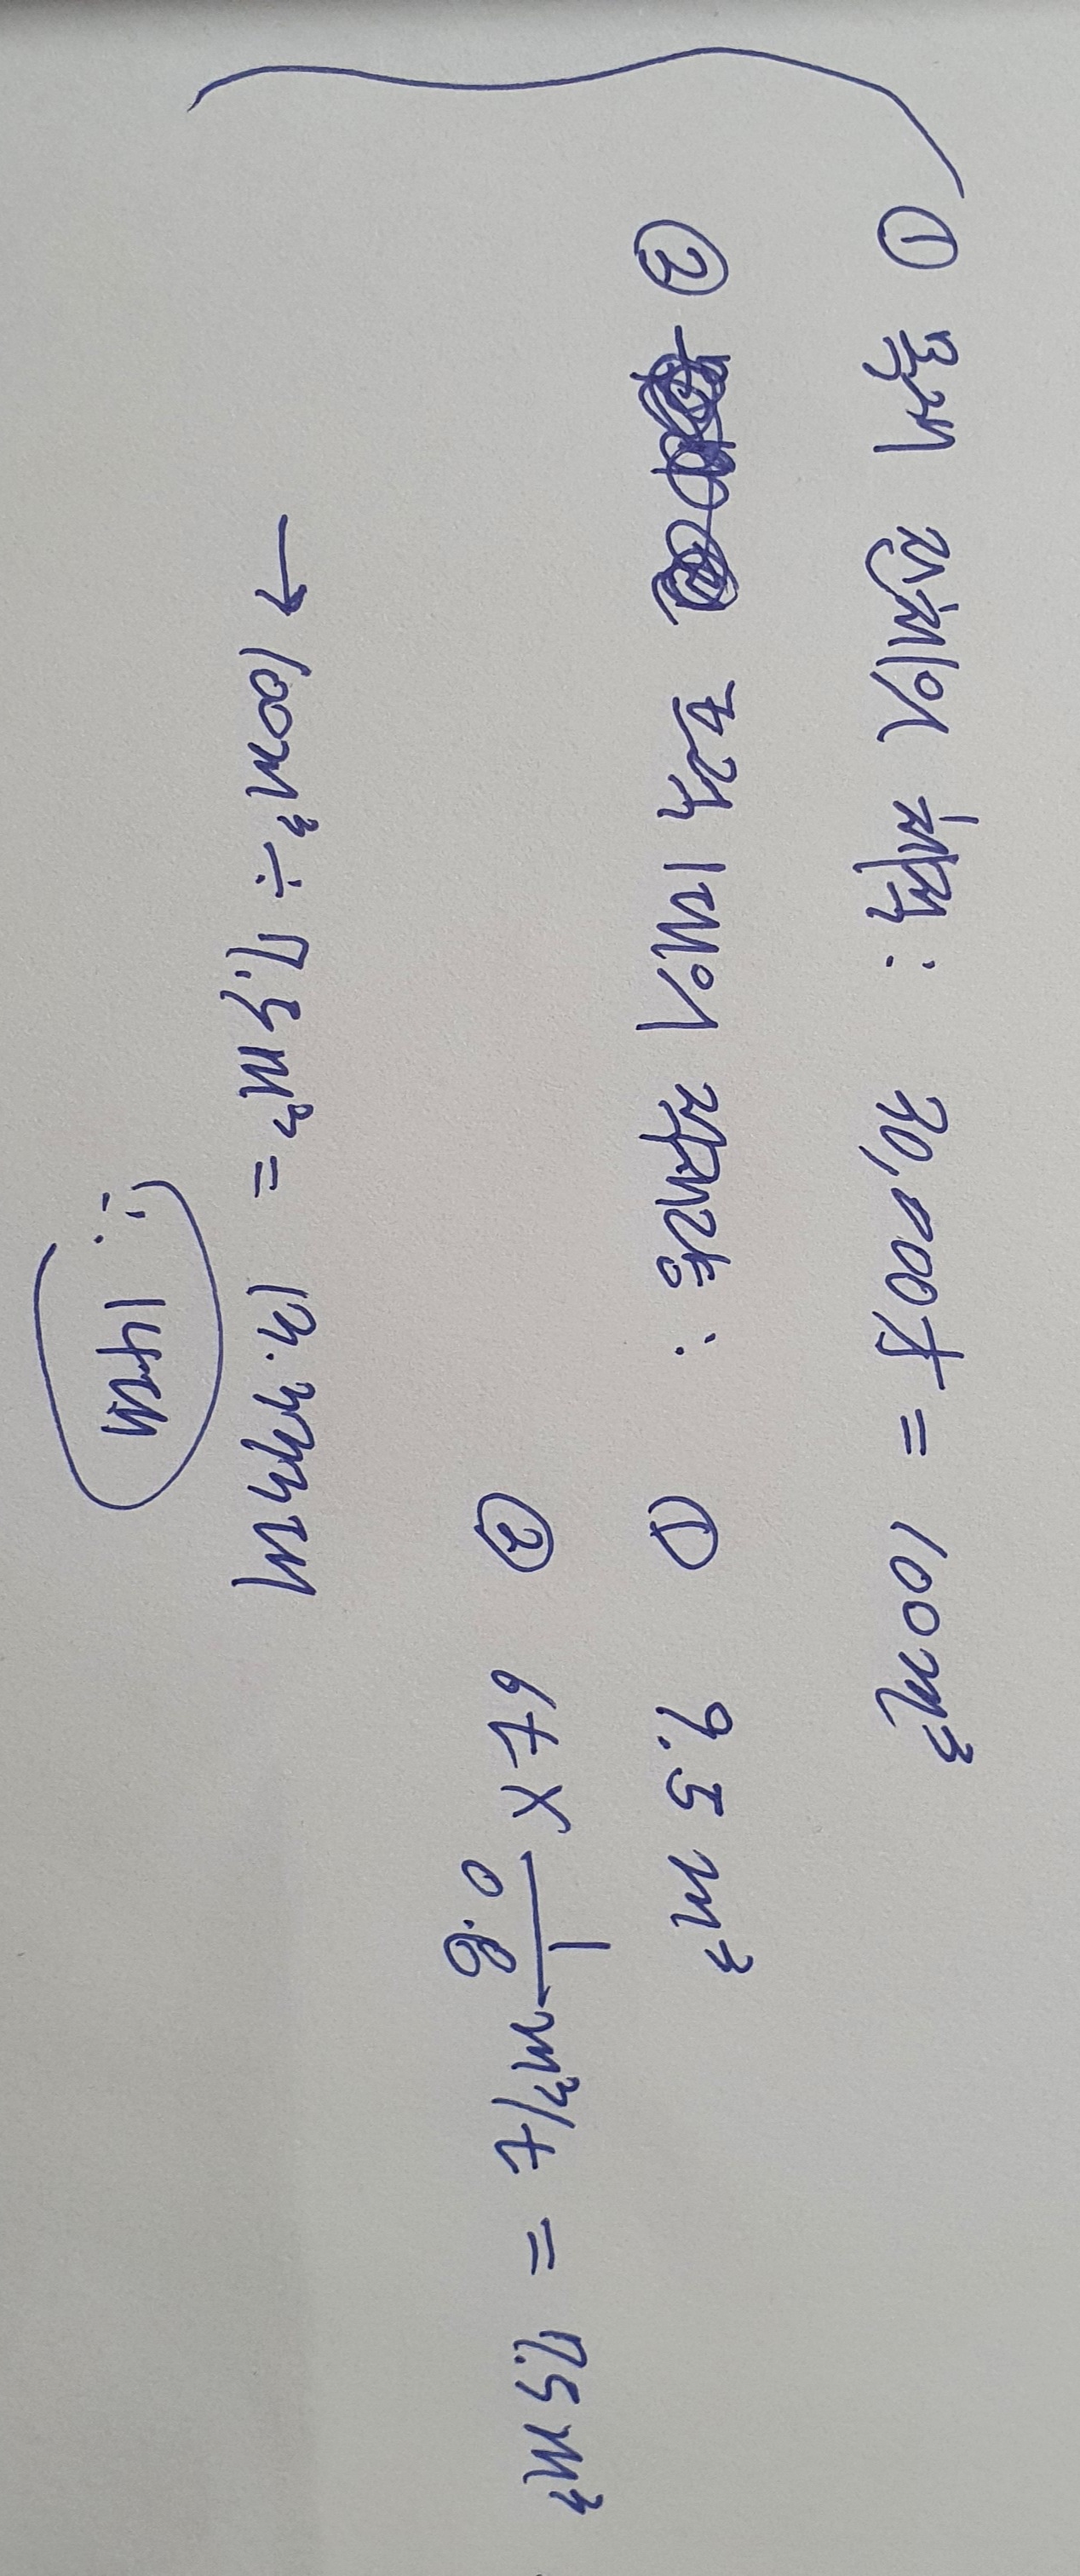 ① 목재 전체의 체적 : 30,000才 = 100m³
② 트럭 1대의 적재량 : ① 9.5 m³
② 6t × 1/0.8 m³/t = 7.5m³
→ 100m³ ÷ 7.5m³ = 13.333대
∴ 14대